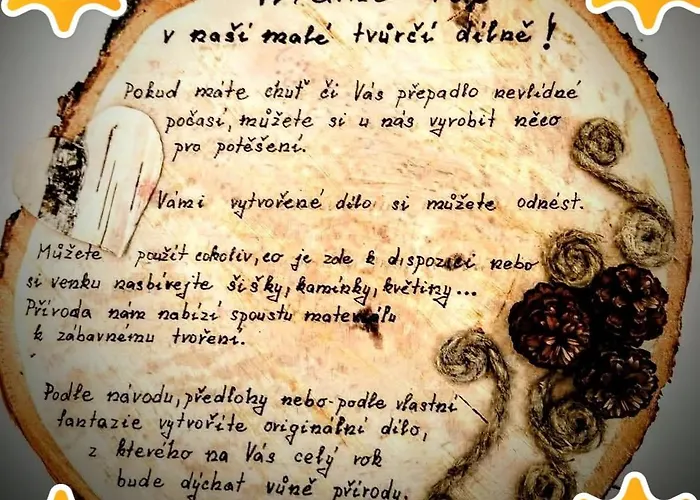 v naší malé tvůrčí dílně!
Pokud máte chuť či Vás přepadlo nevlídné
počasí, můžete si u nás vyrobit něco
pro potěšení.
Vámi vytvořené dílo si můžete odnést.
Můžete použít cokoliv, co je zde k dispozici nebo
si venku nasbírejte šišky, kamínky, květiny...
Příroda nám nabízí spoustu materiálu
k zábavnému tvoření.
Podle návodu, předlohy nebo podle vlastní
fantazie vytvoříte originální dílo,
z kterého na Vás celý rok
bude dýchat vůně přírody.